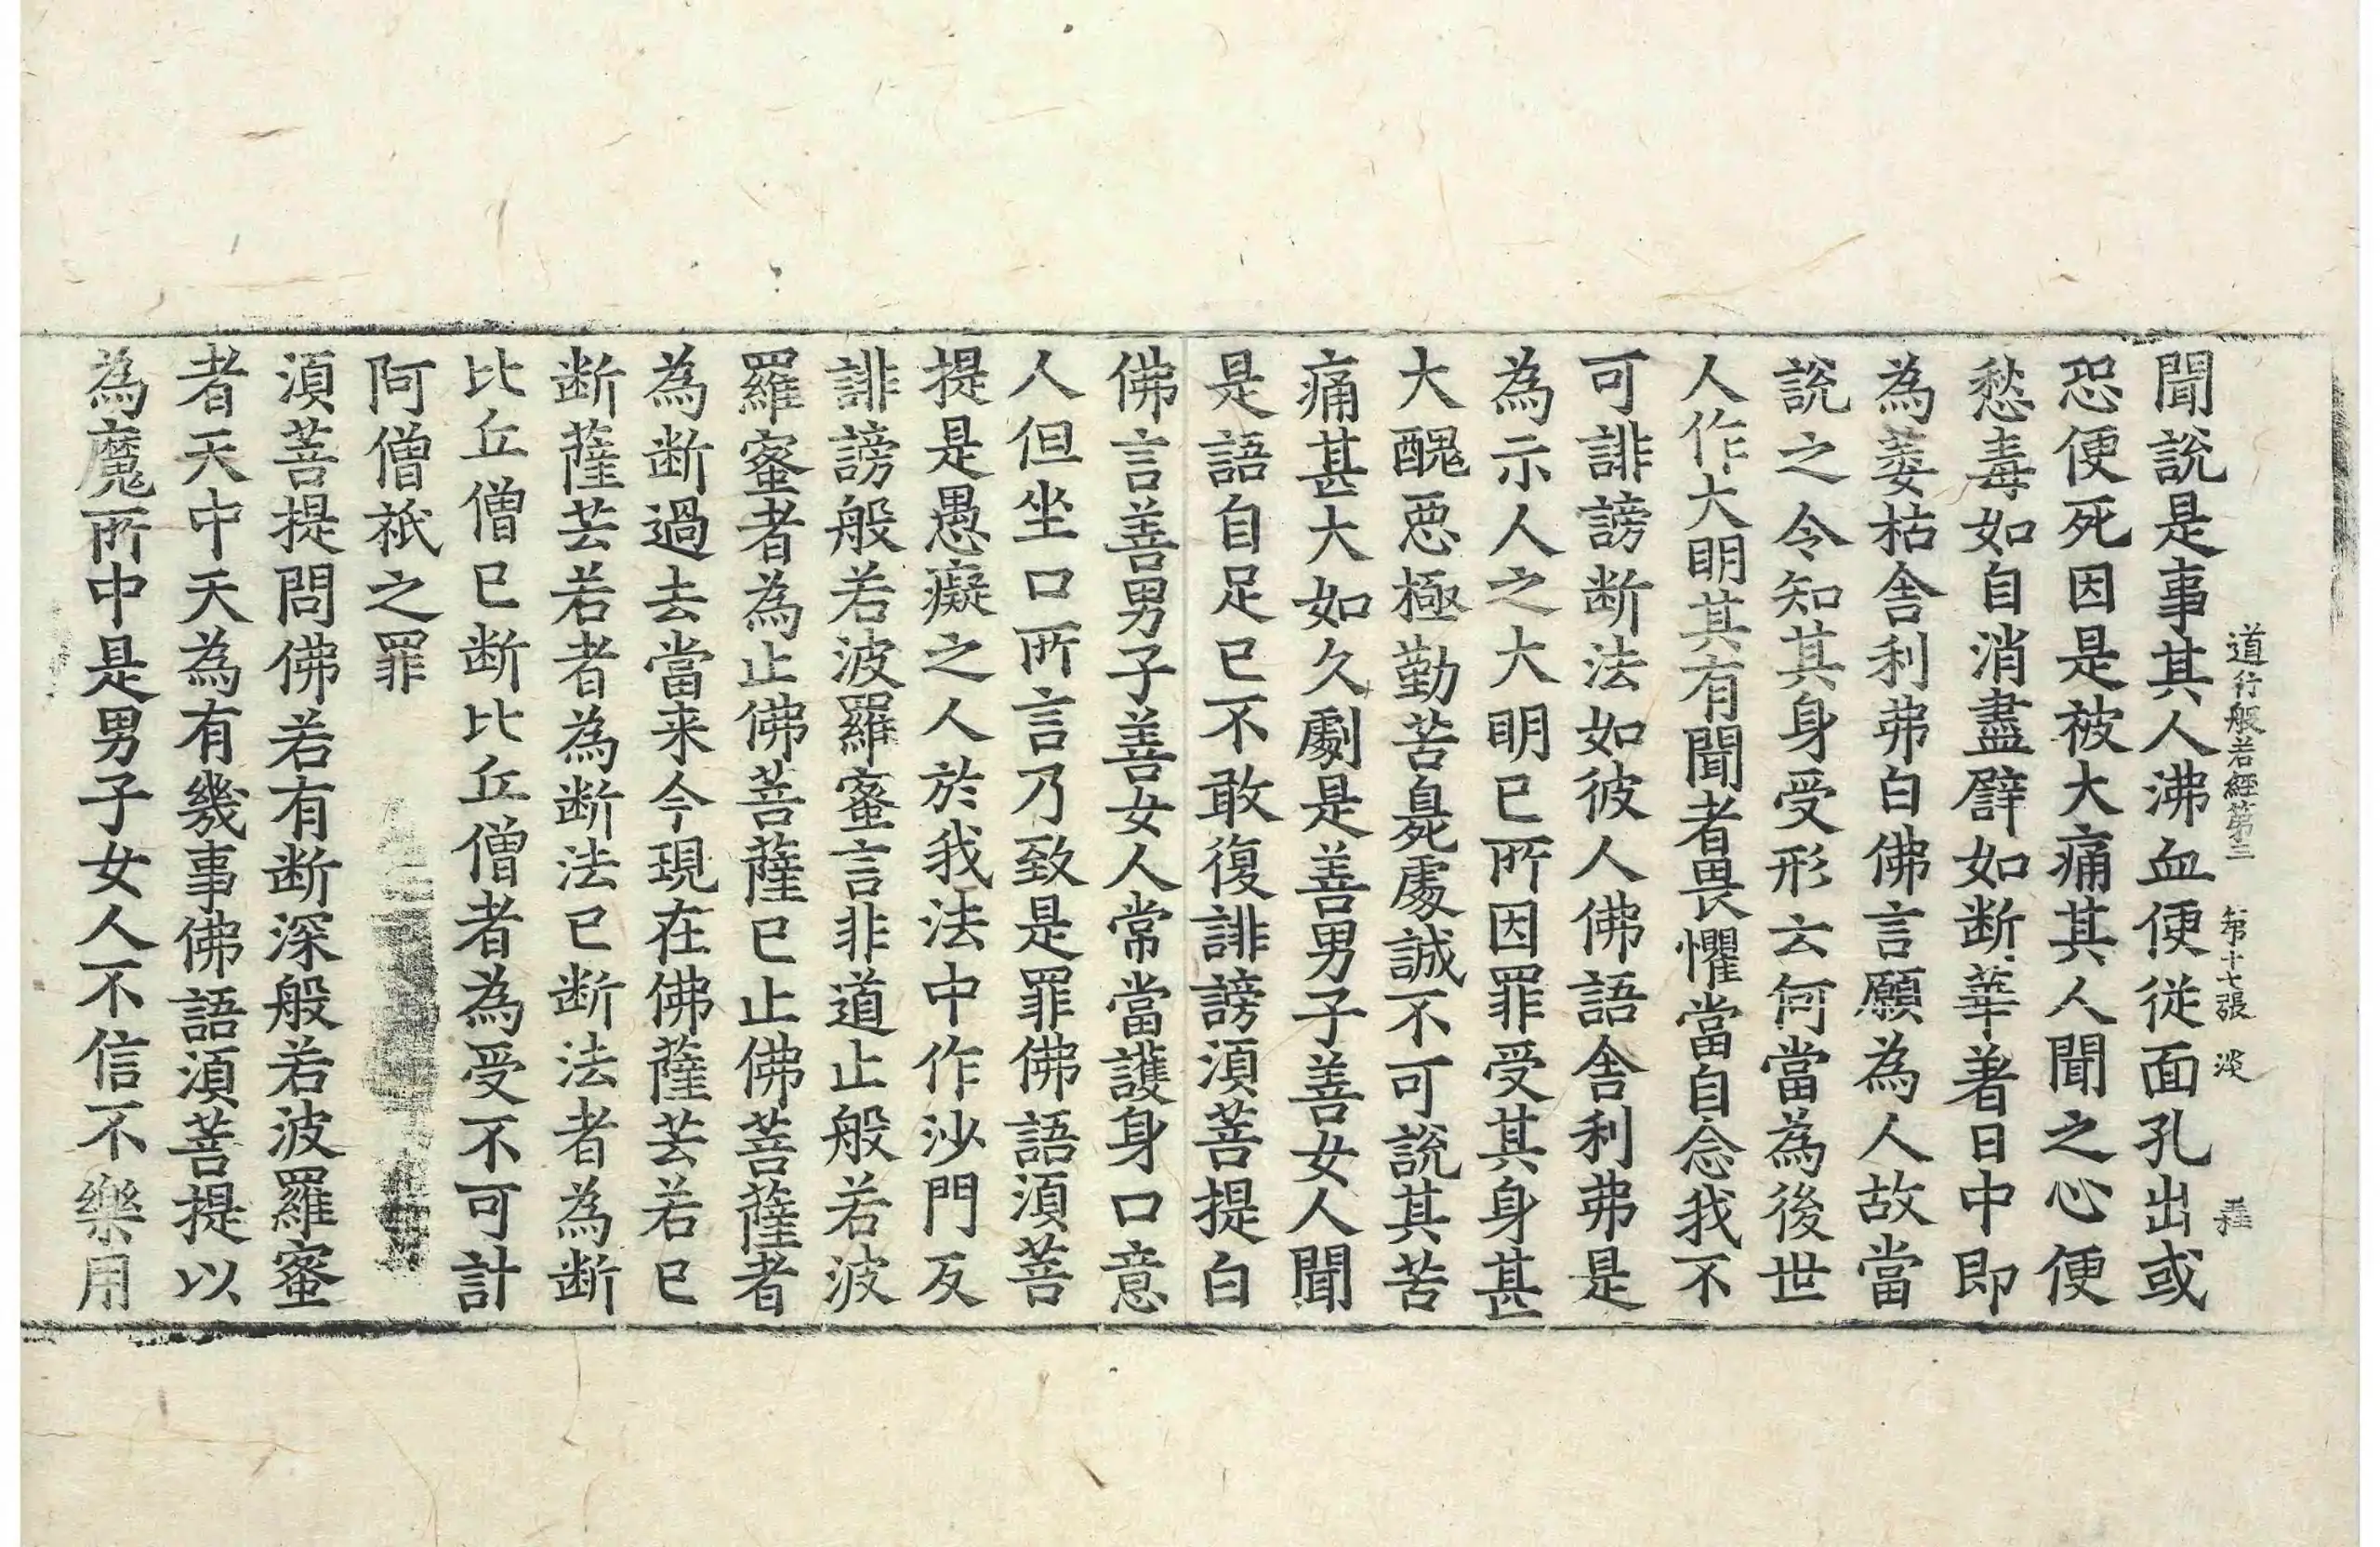 道行般若經第三 第十七張 淡
聞說是事其人沸血便從面孔出或
恐便死因是被大痛其人聞之心便
愁毒如自消盡譬如断華著日中即
為萎枯舎利弗白佛言願為人故當
說之令知其身受形云何當為後世
人作大明其有聞者畏懼當自念我不
可誹謗断法如彼人佛語舎利弗是
為示人之大明已所因罪受其身甚
大醜惡極勤苦臭處誠不可說其苦
痛甚大如久劇是善男子善女人聞
是語自足已不敢復誹謗湏菩提白
佛言善男子善女人常當護身口意
人但坐口所言乃致是罪佛語湏菩
提是愚癡之人於我法中作沙門反
誹謗般若波羅蜜言非道止般若波
羅蜜者為止佛菩薩已止佛菩薩者
為断過去當来今現在佛薩芸若已
断薩芸若者為断法已断法者為断
比丘僧已断比丘僧者為受不可計
阿僧祇之罪
湏菩提問佛若有断深般若波羅蜜
者天中天為有幾事佛語湏菩提以
為魔所中是男子女人不信不樂用